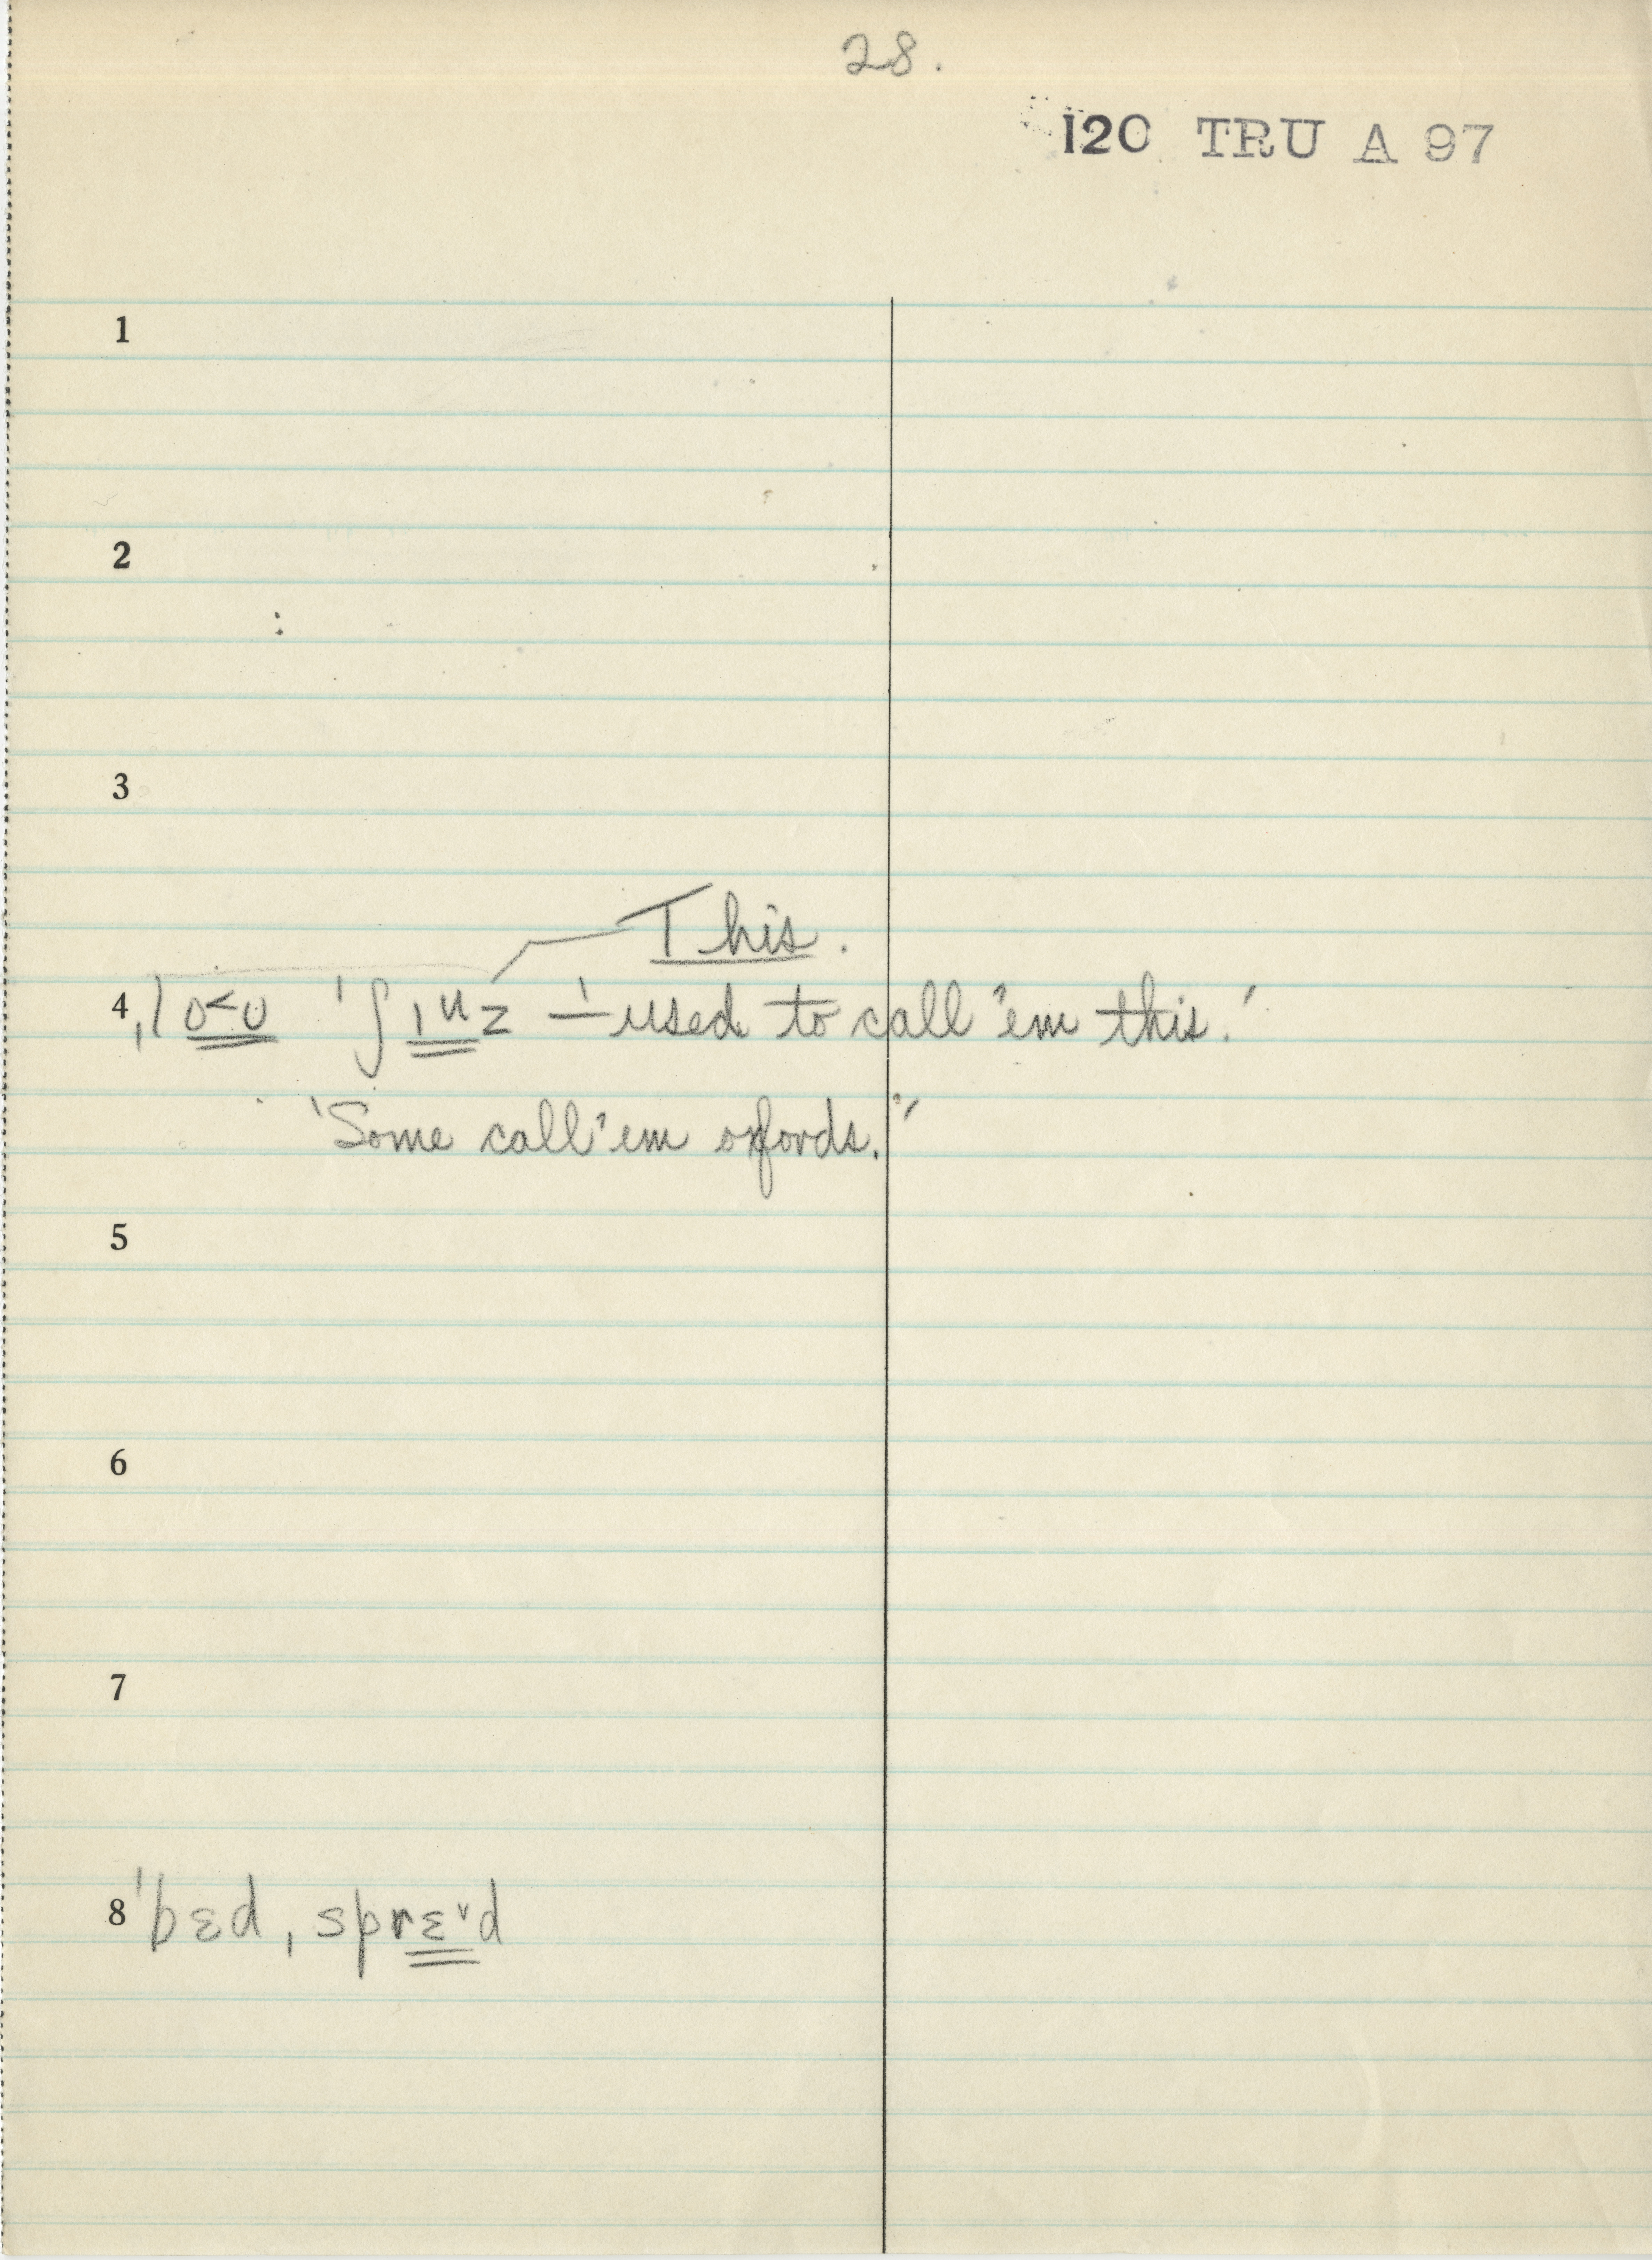 28.
120 TRU A 97
1
2
3
This.
4 ˌlo˂ʊ ˈʃɪᵘz — 'used to call 'em this.'
'Some call 'em oxfords.'
5
6
7
8 ˈbɛd ˌsprɛ˅d